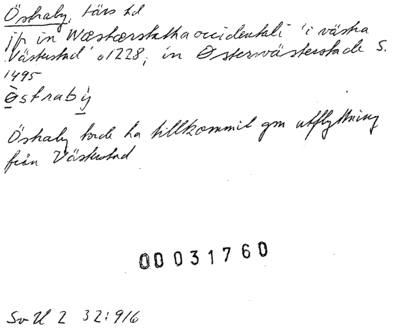 Östraby, Färs hd
jp in Wæstærstatha occidentali 'i västra
Västerstad' o 1228, in Østerwästerstade s.
1495
Östraby
Östraby torde ha tillkommit gm utflyttning
från Västerstad
00031760
Sv U 2 32:916